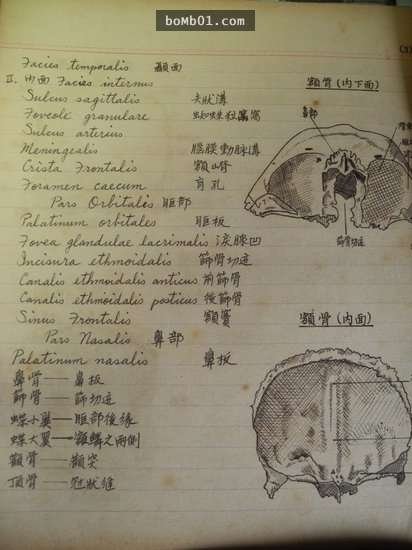 bomb01.com
Facies temporalis 顳面
II. 內面 Facies internus
Sulcus sagittalis 矢狀溝
Foveole granulare 蜘蛛粒窩
Sulcus arterius
Meningealis 腦膜動脈溝
Crista Frontalis 額山脊
Foramen caecum 盲孔
Pars Orbitales 眶部
Palatinum orbitales 眶板
Fovea glandulae lacrimalis 淚腺凹
Incisura ethmoidalis 篩骨切迹
Canalis ethmoidalis anticus 前篩骨
Canalis ethmoidalis posticus 後篩骨
Sinus Frontalis 額竇
Pars Nasalis 鼻部
Palatinum nasalis 鼻板
鼻骨——鼻板
篩骨——篩切迹
蝶小翼——眶部後緣
蝶大翼——額鱗之兩側
顴骨——顴突
頂骨——冠狀縫
額骨(內下面)
鼻部
篩骨切迹
額骨(內面)